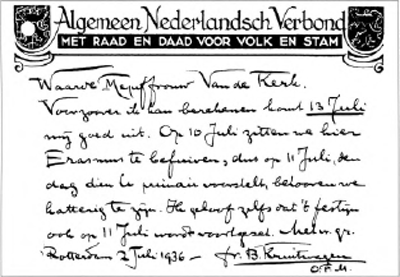 Algemeen Nederlandsch Verbond
MET RAAD EN DAAD VOOR VOLK EN STAM
Waarde Mejuffrouw Van de Kerk.
Voorzoover ik kan berekenen komt 13 Juli
mij goed uit. Op 10 Juli zitten we hier
Erasmus te befuiven, dus op 11 Juli, den
dag dien U primair voorstelt, belooven we
katterig te zijn. Ik geloof zelfs dat 't festijn
ook op 11 Juli wordt voortgezet. Met vr. gr.
Rotterdam 2 Juli 1936 – fr. B. Kruitwagen
O.F.M.